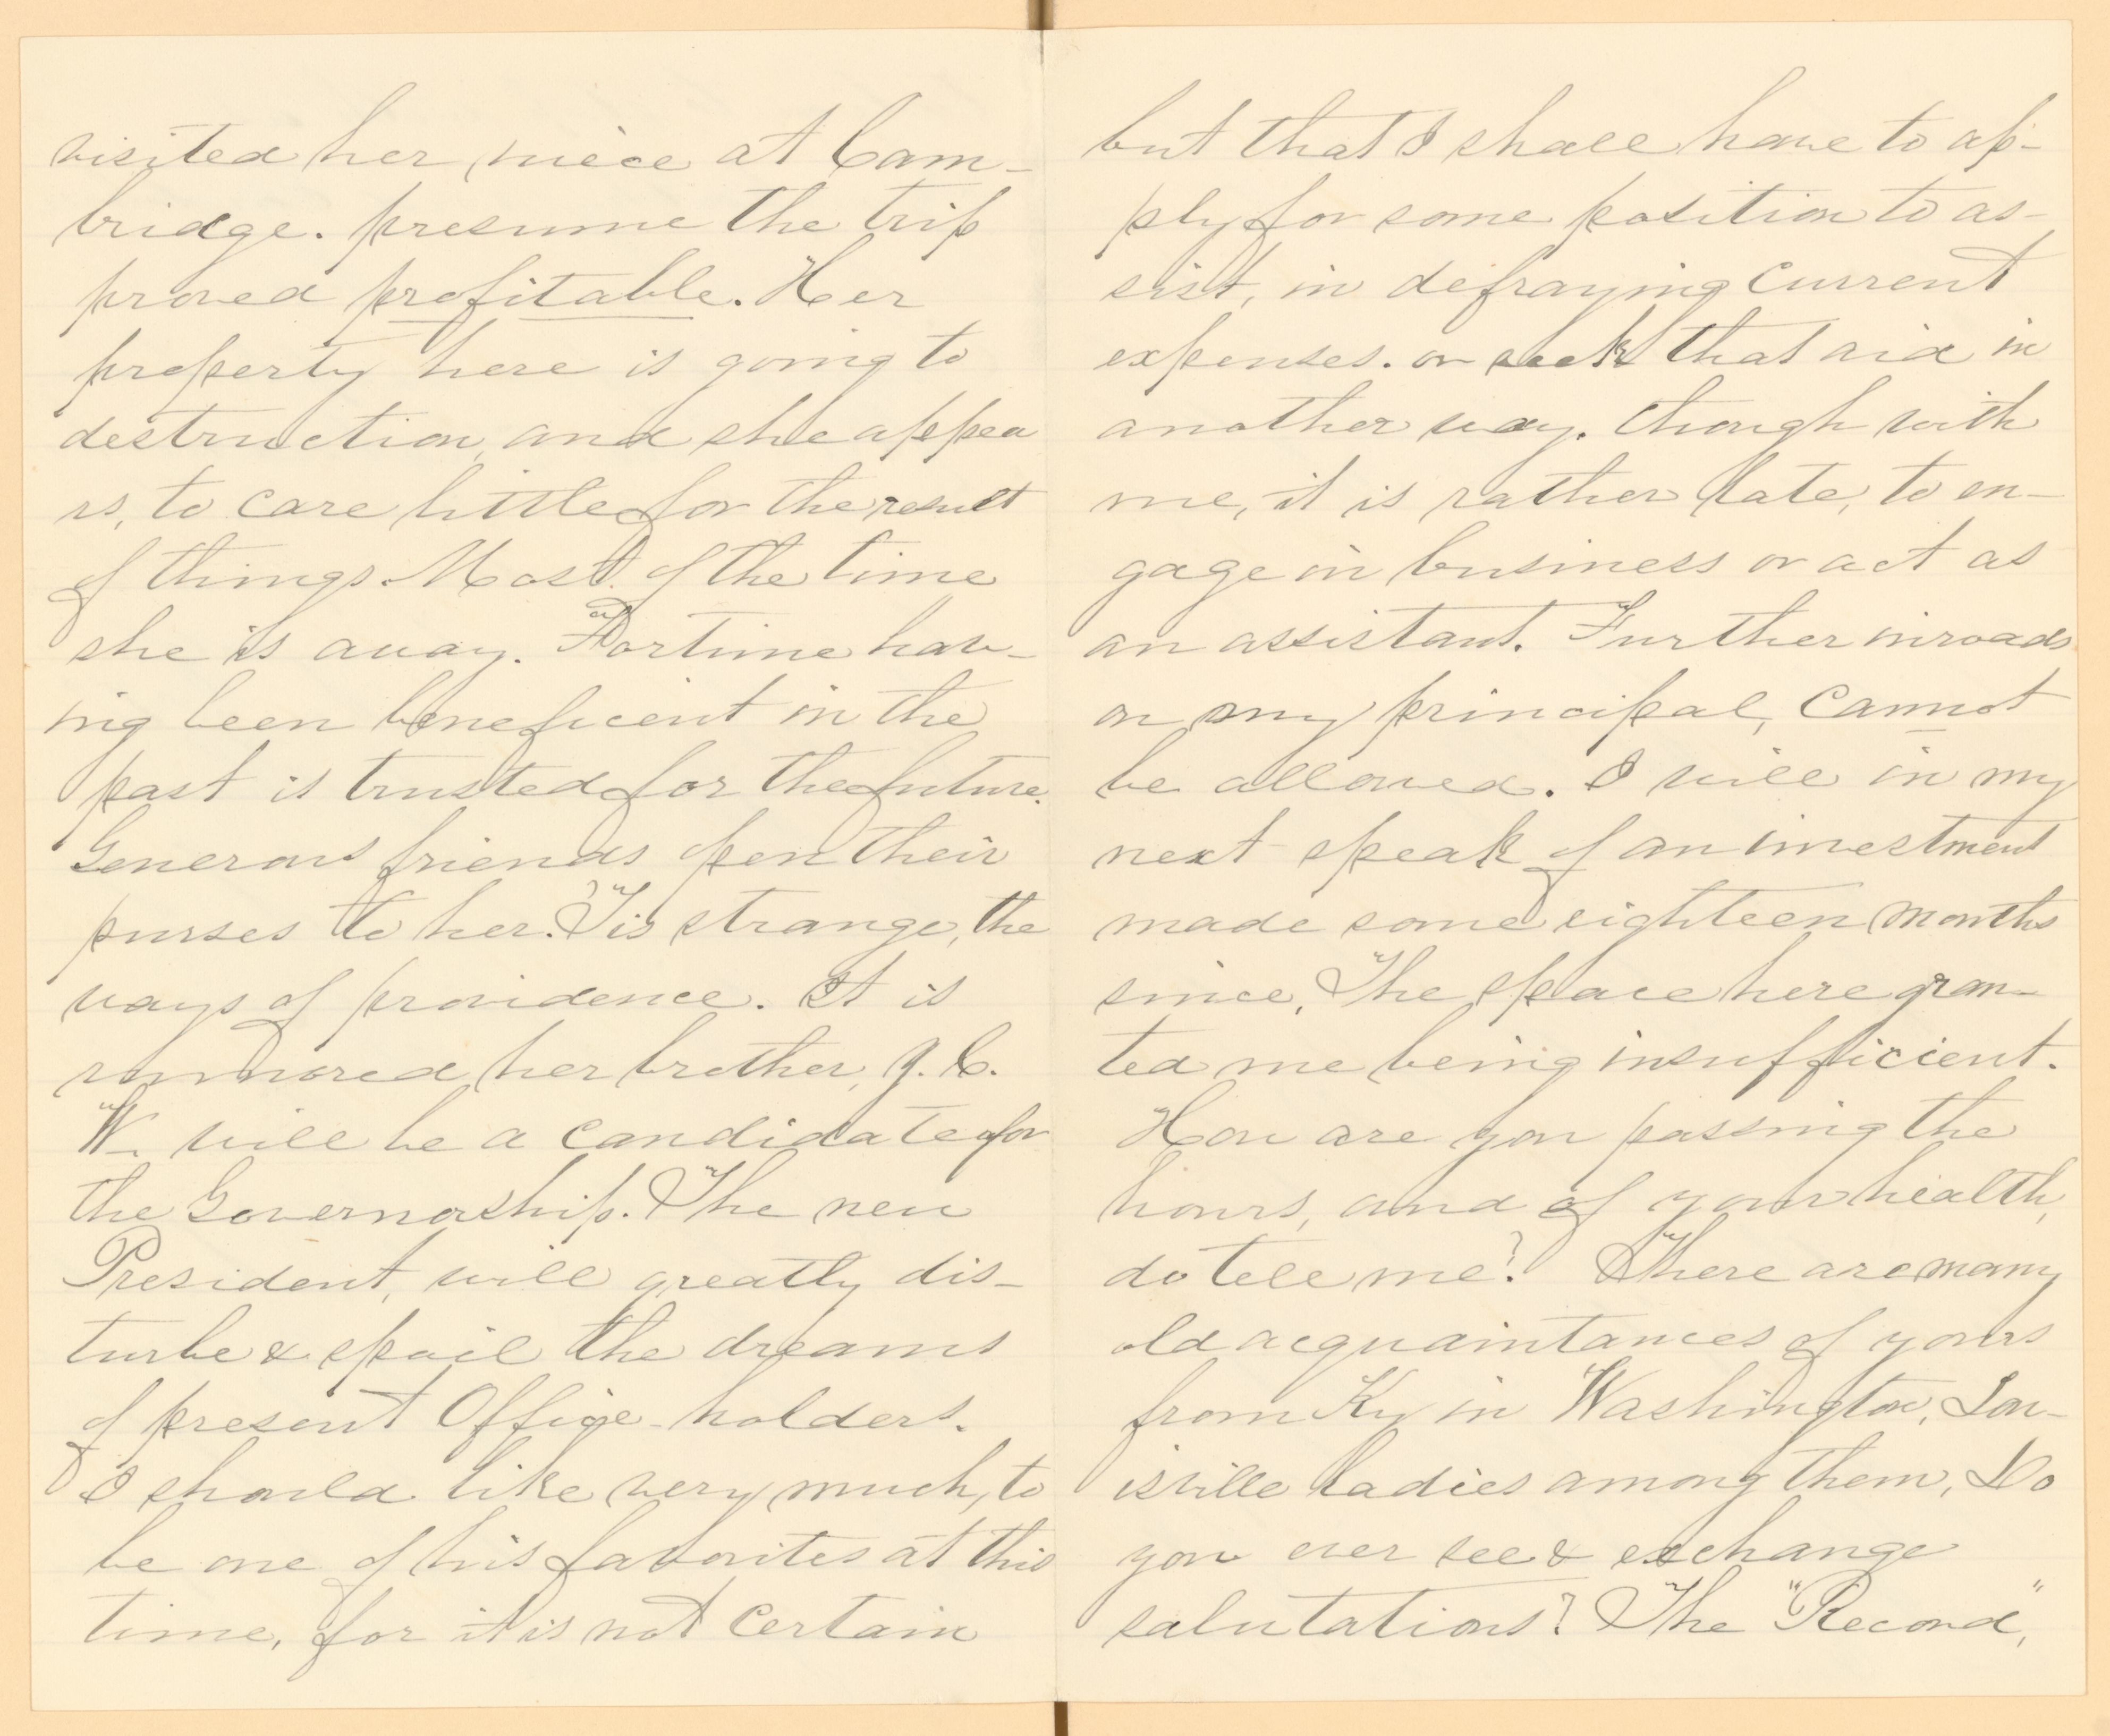 visited her niece at Cam-
bridge. presume the trip
proved profitable. Her
property here is going to
destruction, and she appea
rs, to care little for the result
of things. Most of the time
she is away. Fortune hav-
ing been beneficent in the
past is trusted for the future.
Generous friends open their
purses to her. 'Tis strange, the
ways of providence. It is
rumored her brother, J. C.
W. will be a candidate for
the Governorship. The new
President, will greatly dis-
turbe & spoil the dreams
of present Office-holders.
I should like very much, to
be one of his favorites at this
time, for it is not certain
but that I shall have to ap-
ply for some position to as-
sist, in defraying current
expenses. or seek that aid in
another way. though with
me, it is rather late, to en-
gage in business or act as
an assistant. Further inroads
on my principal, cannot
be allowed. I will in my
next speak of an investment
made some eighteen months
since, The space here gran-
ted me being insufficient.
How are you passing the
hours, and of your health,
do tell me? There are many
old acquaintances of yours
from Ky in Washington, Lou-
isville ladies among them, Do
you ever see & exchange
salutations? The "Record",